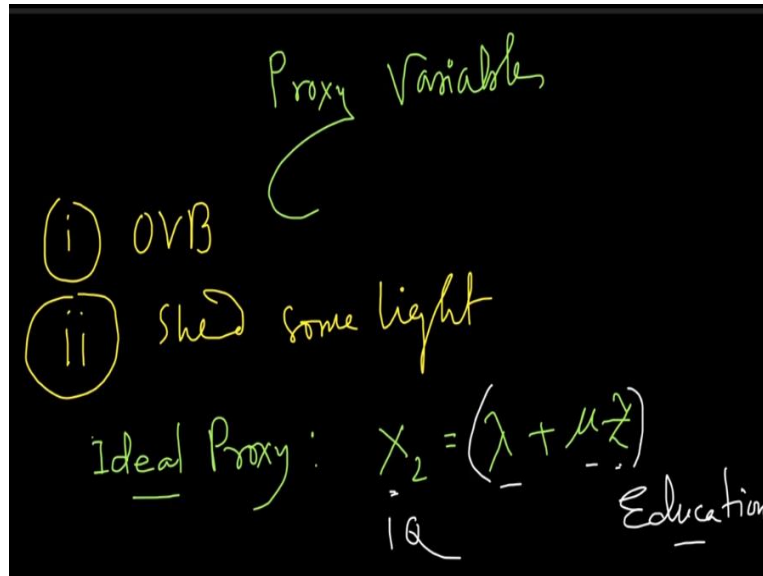 Proxy Variables
i OVB
ii Shed some light
Ideal Proxy: X₂ = (λ + μZ)
IQ
Education